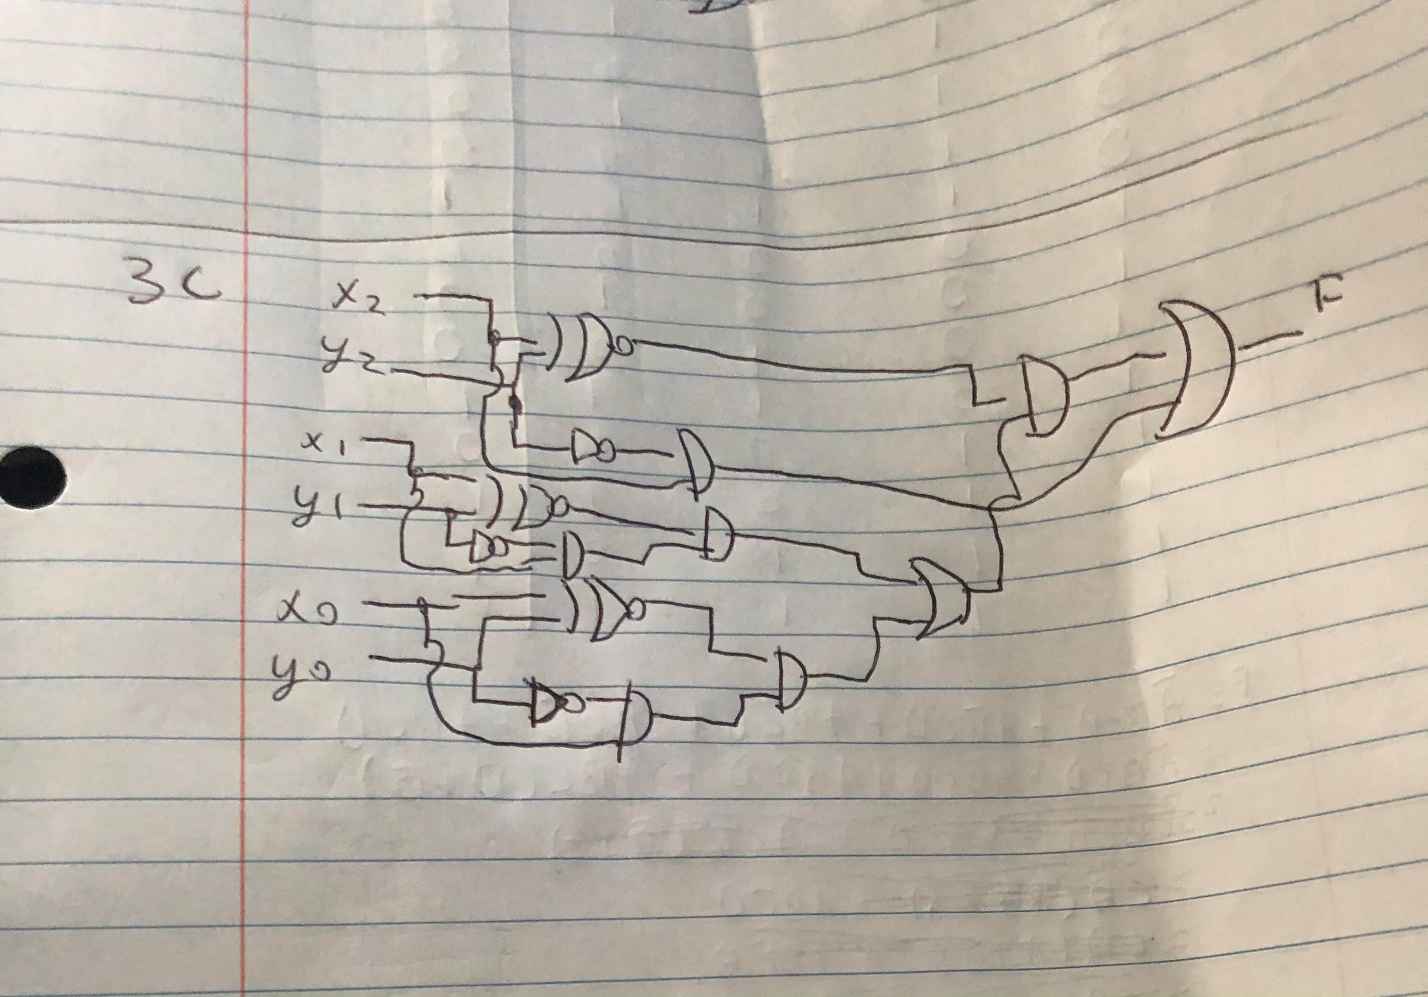 3C
x2
y2
x1
y1
x0
y0
F